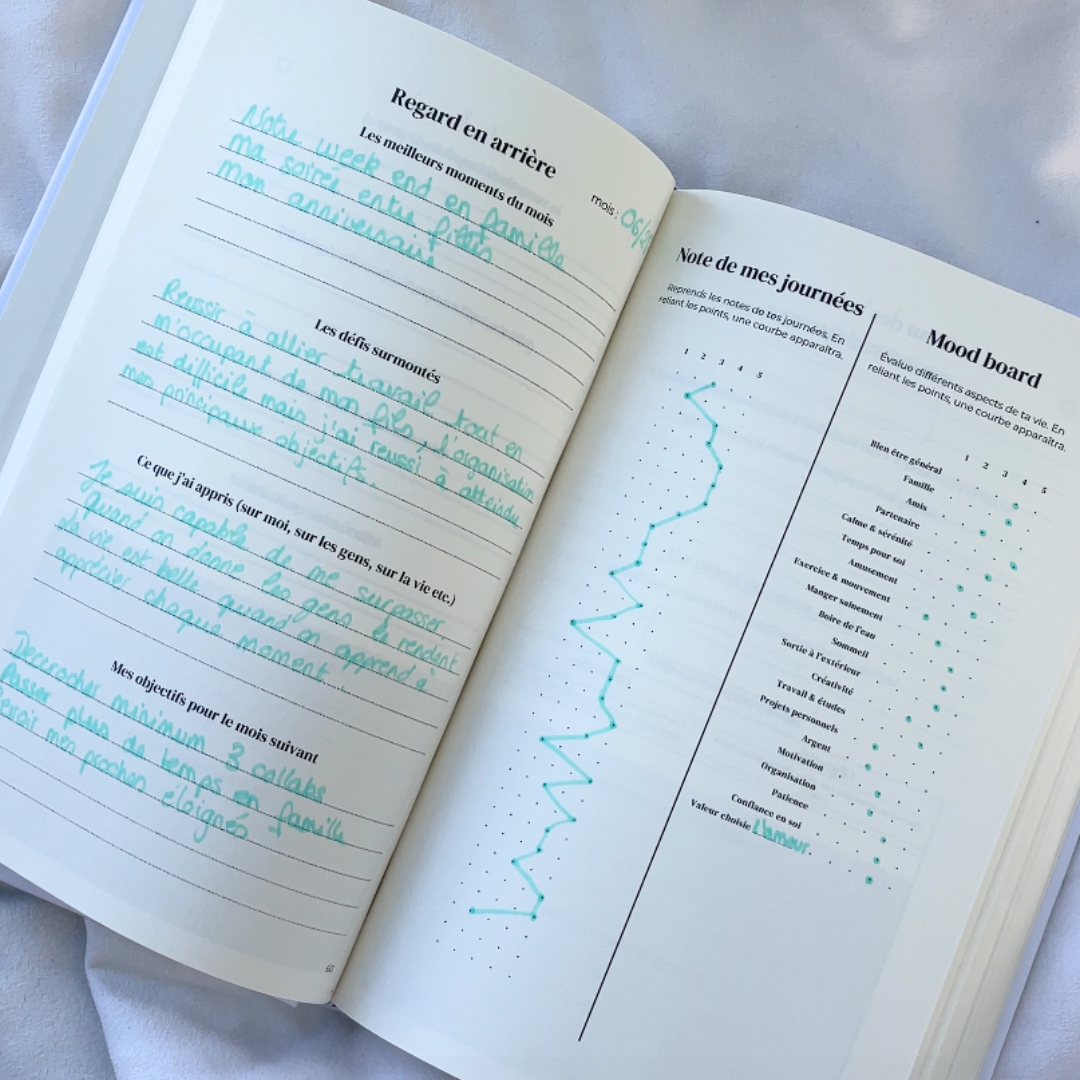 Regard en arrière
mois : 06/2
Les meilleurs moments du mois
Notre week end en famille
ma soirée entre filles
mon anniversaire
Les défis surmontés
Reussir à allier travail tout en
m'occupant de mon fils, l'organisation
est difficile mais j'ai réussi à atteindre
mes principaux objectifs.
Ce que j'ai appris (sur moi, sur les gens, sur la vie etc.)
Je suis capable de me surpasser,
Quand on donne les gens le rendent
La vie est belle quand on apprend à
apprécier chaque moment.
Mes objectifs pour le mois suivant
Décrocher minimum 3 collabs
Passer plus de temps en famille
revoir mes proches éloignés
60
Note de mes journées
Reprends les notes de tes journées. En
reliant les points, une courbe apparaîtra.
1 2 3 4 5
Mood board
Évalue différents aspects de ta vie. En
reliant les points, une courbe apparaîtra.
1 2 3 4 5
Bien être général
Famille
Amis
Partenaire
Calme & sérénité
Temps pour soi
Amusement
Exercice & mouvement
Manger sainement
Boire de l'eau
Sommeil
Sortie à l'extérieur
Créativité
Travail & études
Projets personnels
Argent
Motivation
Organisation
Patience
Confiance en soi
Valeur choisie L'amour